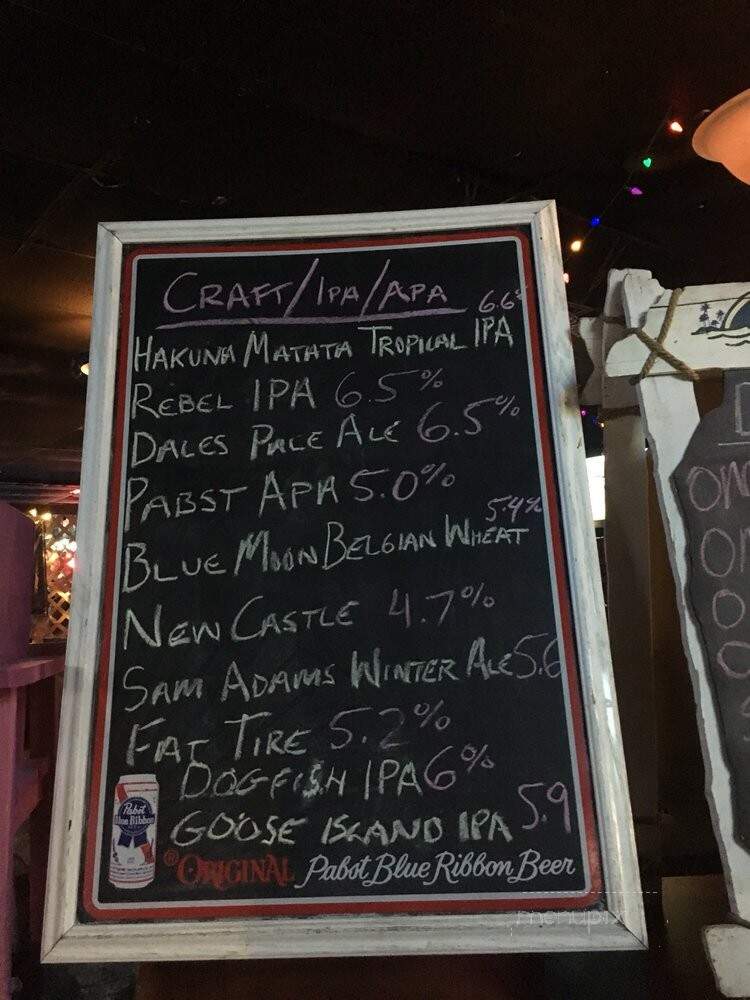 CRAFT/IPA/APA
6.6%
HAKUNA MATATA TROPICAL IPA
REBEL IPA 6.5%
DALES PALE ALE 6.5%
PABST APA 5.0%
5.4%
BLUE MOON BELGIAN WHEAT
NEW CASTLE 4.7%
SAM ADAMS WINTER ALE 5.6
FAT TIRE 5.2%
DOGFISH IPA 6%
GOOSE ISLAND IPA 5.9
Pabst
Blue Ribbon
® ORIGINAL Pabst Blue Ribbon Beer
menupix